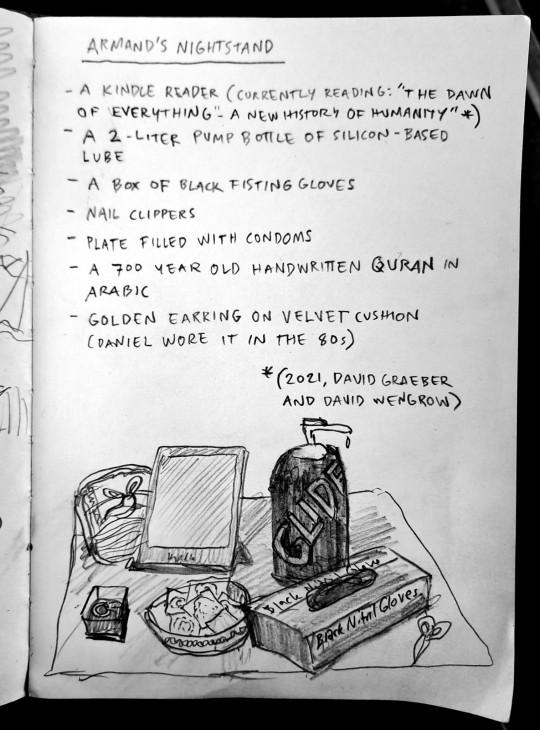 ARMAND'S NIGHTSTAND
- A KINDLE READER (CURRENTLY READING: "THE DAWN
OF EVERYTHING" - A NEW HISTORY OF HUMANITY" *)
- A 2-LITER PUMP BOTTLE OF SILICON-BASED
LUBE
- A BOX OF BLACK FISTING GLOVES
- NAIL CLIPPERS
- PLATE FILLED WITH CONDOMS
- A 700 YEAR OLD HANDWRITTEN QURAN IN
ARABIC
- GOLDEN EARRING ON VELVET CUSHION
(DANIEL WORE IT IN THE 80s)
* (2021, DAVID GRAEBER
AND DAVID WENGROW)
GLIDE
Kindle
Black
Black Nitril Gloves